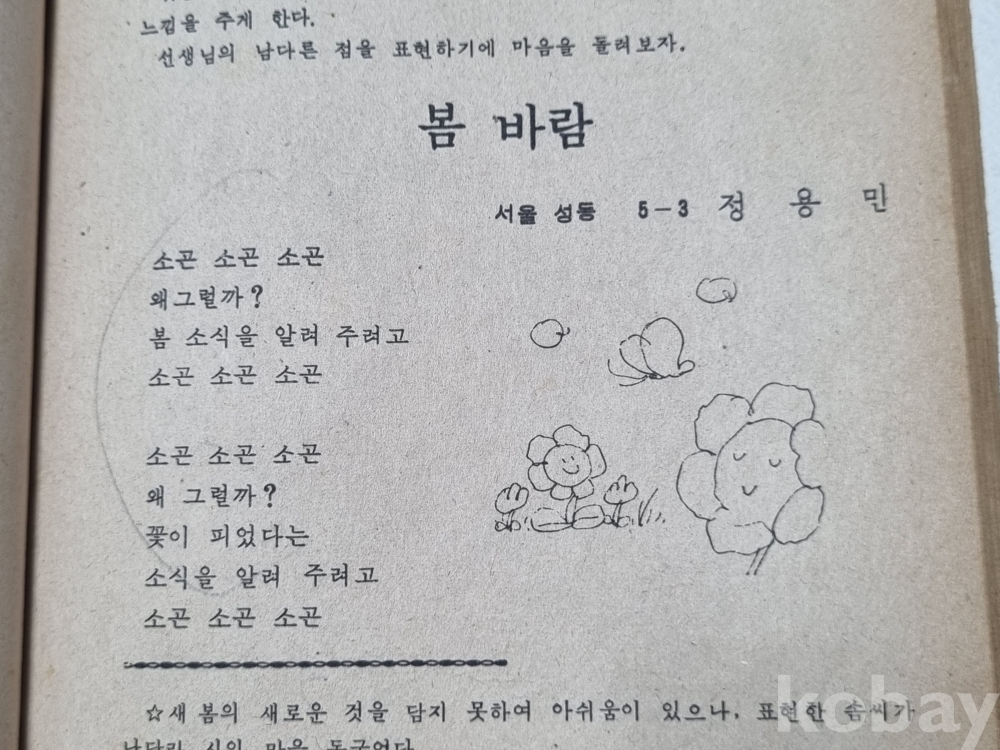 느낌을 주게 한다.
선생님의 남다른 점을 표현하기에 마음을 돌려보자.
봄 바람
서울 성동 5-3 정 용 민
소곤 소곤 소곤
왜그럴까?
봄 소식을 알려 주려고
소곤 소곤 소곤
소곤 소곤 소곤
왜 그럴까?
꽃이 피었다는
소식을 알려 주려고
소곤 소곤 소곤
☆새 봄의 새로운 것을 담지 못하여 아쉬움이 있으나, 표현한 솜씨가
kobay